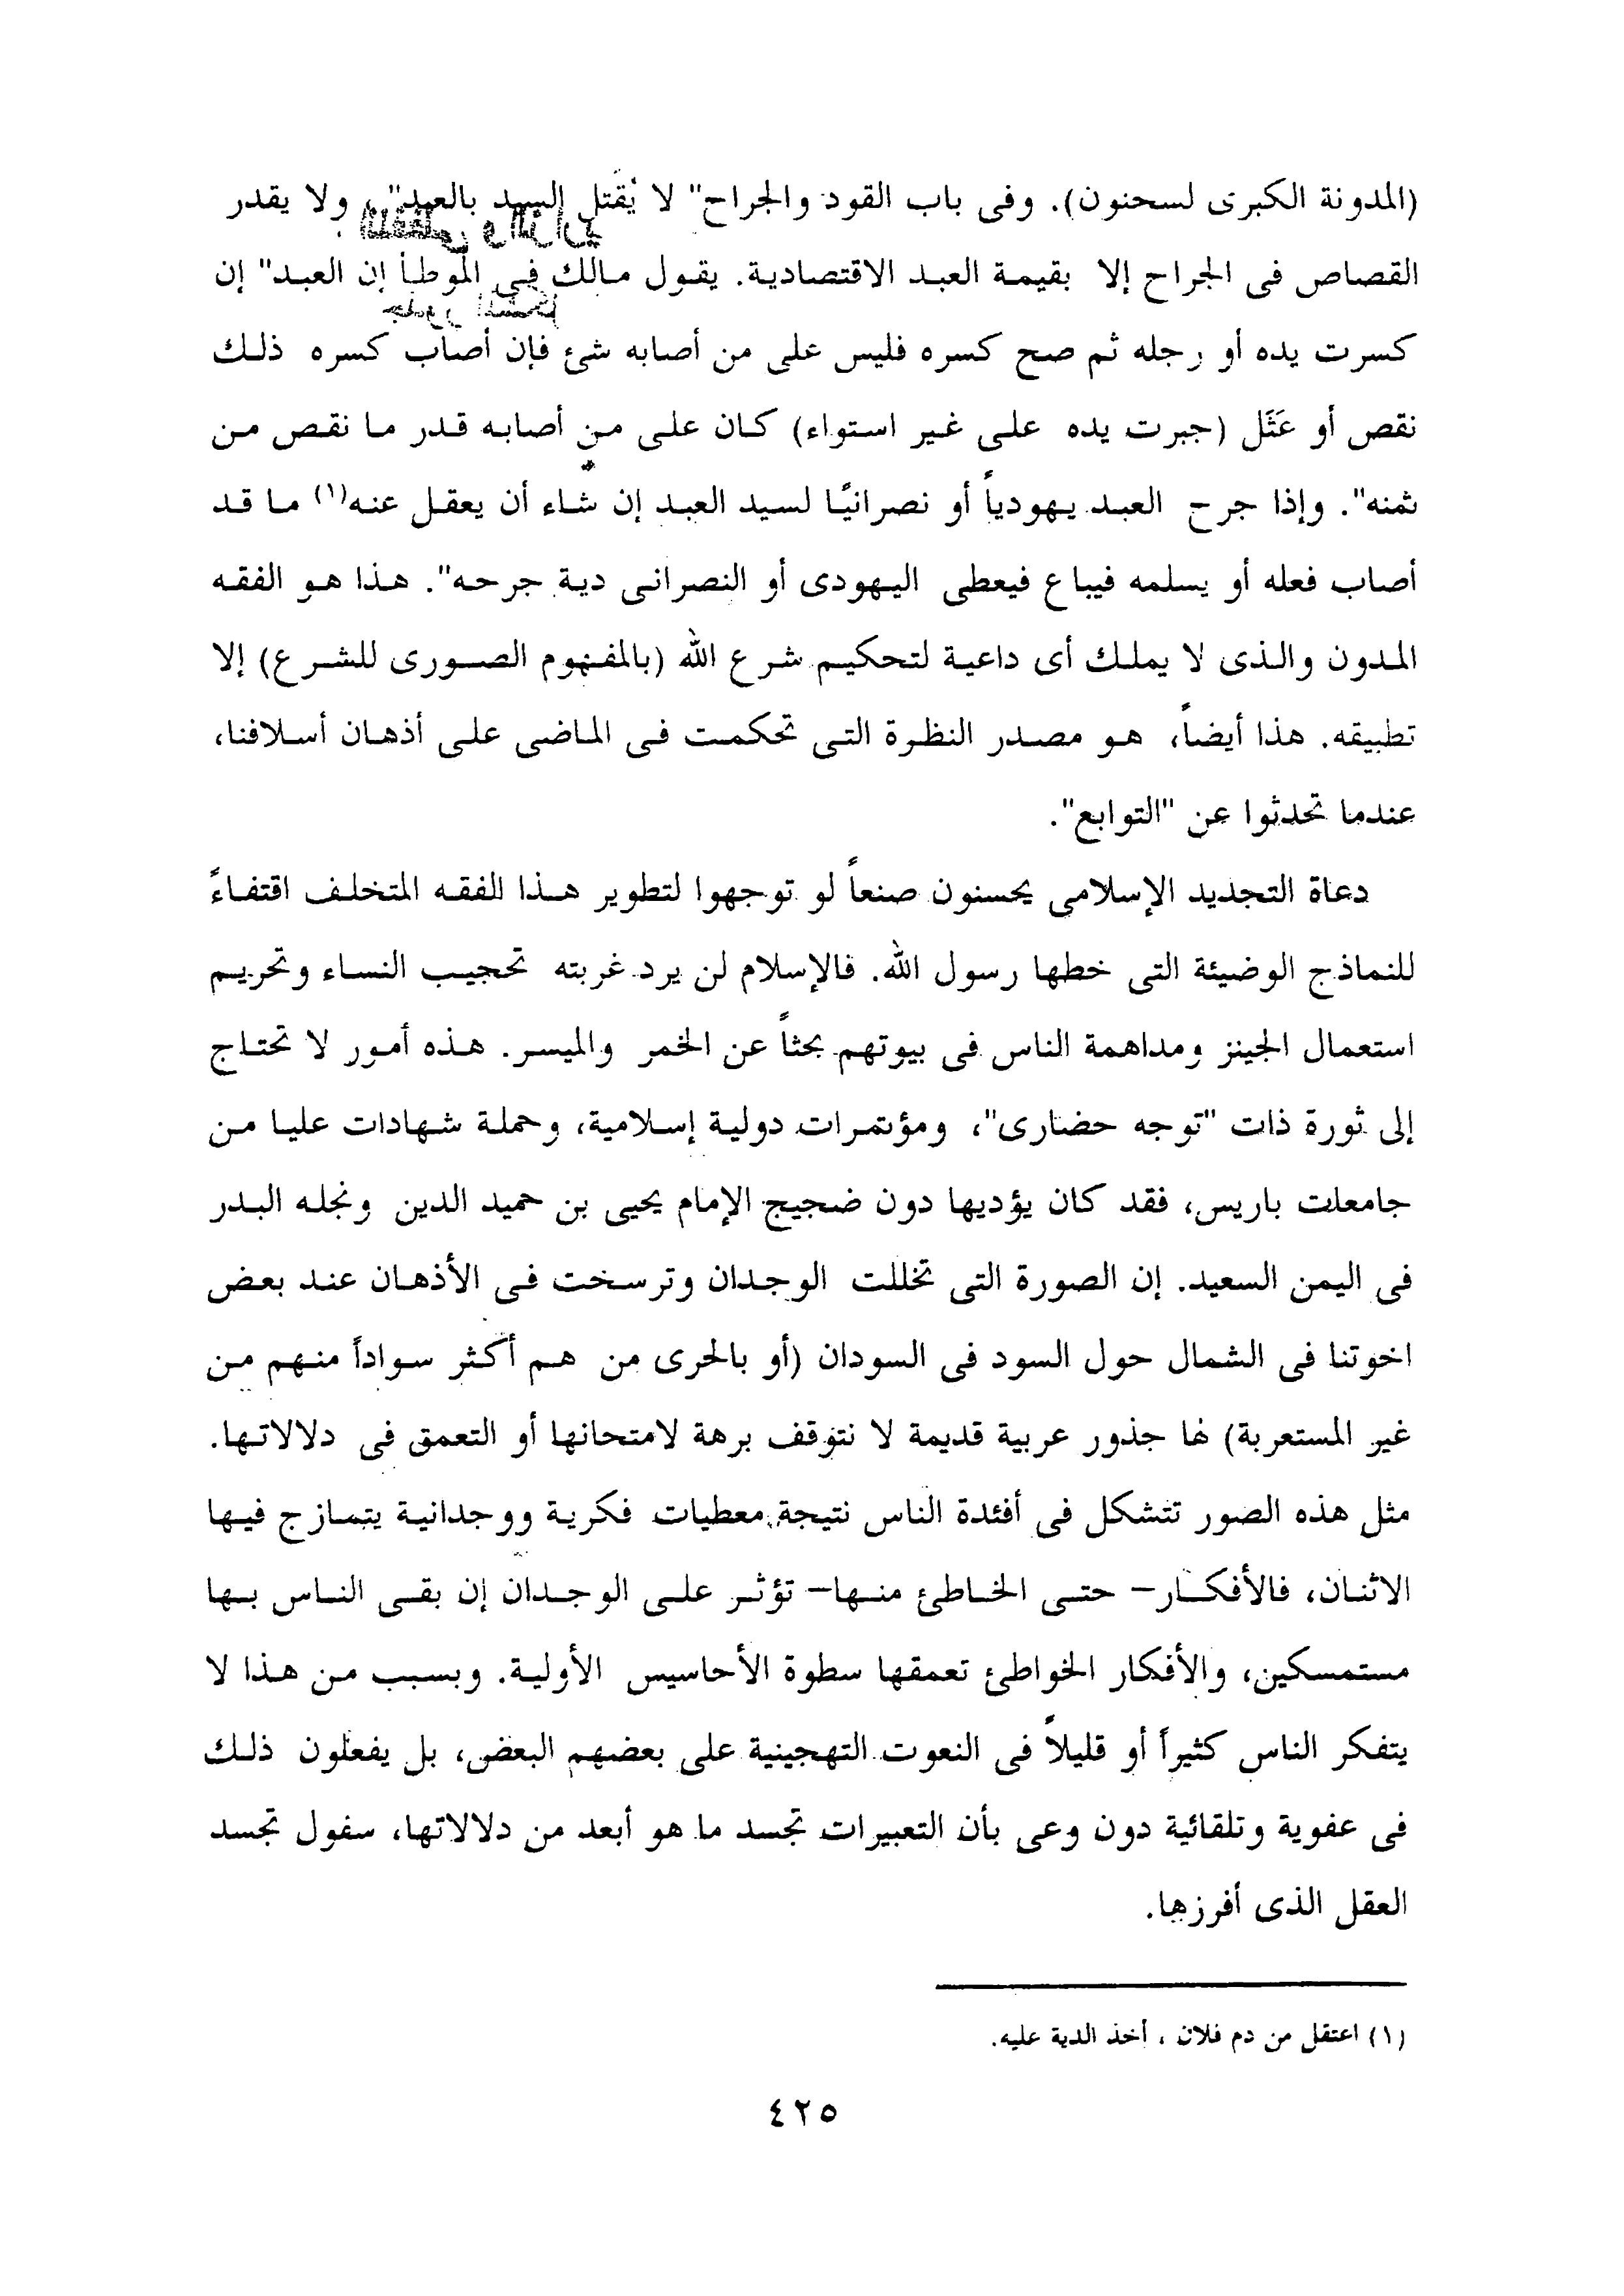 (المدونة الكبرى لسحنون). وفى باب القود والجراح" لا يُقتل السيد بالعبد"، ولا يقدر
القصاص فى الجراح إلا بقيمة العبد الاقتصادية. يقول مالك فى الموطأ إن العبد" إن
كسرت يده أو رجله ثم صح كسره فليس على من أصابه شئ فإن أصاب كسره ذلك
نقص أو عَثَل (جبرت يده على غير استواء) كان على من أصابه قدر ما نقص من
ثمنه". وإذا جرح العبد يهودياً أو نصرانيًا لسيد العبد إن شاء أن يعقل عنه(١) ما قد
أصاب فعله أو يسلمه فيباع فيعطى اليهودى أو النصرانى دية جرحه". هذا هو الفقه
المدون والذى لا يملك أى داعية لتحكيم شرع الله (بالمفهوم الصورى للشرع) إلا
تطبيقه. هذا أيضاً، هو مصدر النظرة التى تحكمت فى الماضى على أذهان أسلافنا،
عندما تحدثوا عن "التوابع".
دعاة التجديد الإسلامى يحسنون صنعاً لو توجهوا لتطوير هذا الفقه المتخلف اقتفاءً
للنماذج الوضيئة التى خطها رسول الله. فالإسلام لن يرد غربته تحجيب النساء وتحريم
استعمال الجينز ومداهمة الناس فى بيوتهم بحثاً عن الخمر والميسر. هذه أمور لا تحتاج
إلى ثورة ذات "توجه حضارى"، ومؤتمرات دولية إسلامية، وحملة شهادات عليا من
جامعات باريس، فقد كان يؤديها دون ضجيج الإمام يحيى بن حميد الدين ونجله البدر
فى اليمن السعيد. إن الصورة التى تخللت الوجدان وترسخت فى الأذهان عند بعض
اخوتنا فى الشمال حول السود فى السودان (أو بالحرى من هم أكثر سواداً منهم من
غير المستعربة) لها جذور عربية قديمة لا نتوقف برهة لامتحانها أو التعمق فى دلالاتها.
مثل هذه الصور تتشكل فى أفئدة الناس نتيجة معطيات فكرية ووجدانية يتمازج فيها
الاثنان، فالأفكار– حتى الخاطئ منها– تؤثر على الوجدان إن بقى الناس بها
مستمسكين، والأفكار الخواطئ تعمقها سطوة الأحاسيس الأولية. وبسبب من هذا لا
يتفكر الناس كثيراً أو قليلاً فى النعوت التهجينية على بعضهم البعض، بل يفعلون ذلك
فى عفوية وتلقائية دون وعى بأن التعبيرات تجسد ما هو أبعد من دلالاتها، سفول تجسد
العقل الذى أفرزها.
(١) اعتقل من دم فلان ، أخذ الدية عليه.
٤٢٥